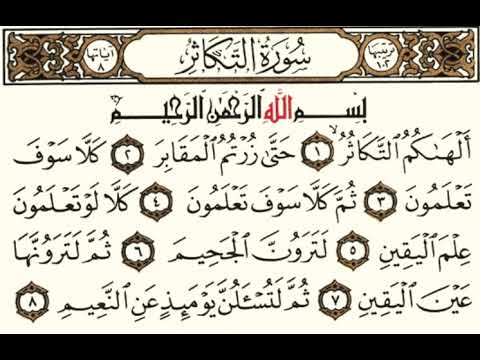 ترتيبها ١٠٢ سُورَةُ التَّكَاثُرِ آياتها ٨
بِسْمِ اللَّهِ الرَّحْمَٰنِ الرَّحِيمِ
أَلْهَاكُمُ التَّكَاثُرُ ١ حَتَّىٰ زُرْتُمُ الْمَقَابِرَ ٢ كَلَّا سَوْفَ
تَعْلَمُونَ ٣ ثُمَّ كَلَّا سَوْفَ تَعْلَمُونَ ٤ كَلَّا لَوْ تَعْلَمُونَ
عِلْمَ الْيَقِينِ ٥ لَتَرَوُنَّ الْجَحِيمَ ٦ ثُمَّ لَتَرَوُنَّهَا
عَيْنَ الْيَقِينِ ٧ ثُمَّ لَتُسْأَلُنَّ يَوْمَئِذٍ عَنِ النَّعِيمِ ٨